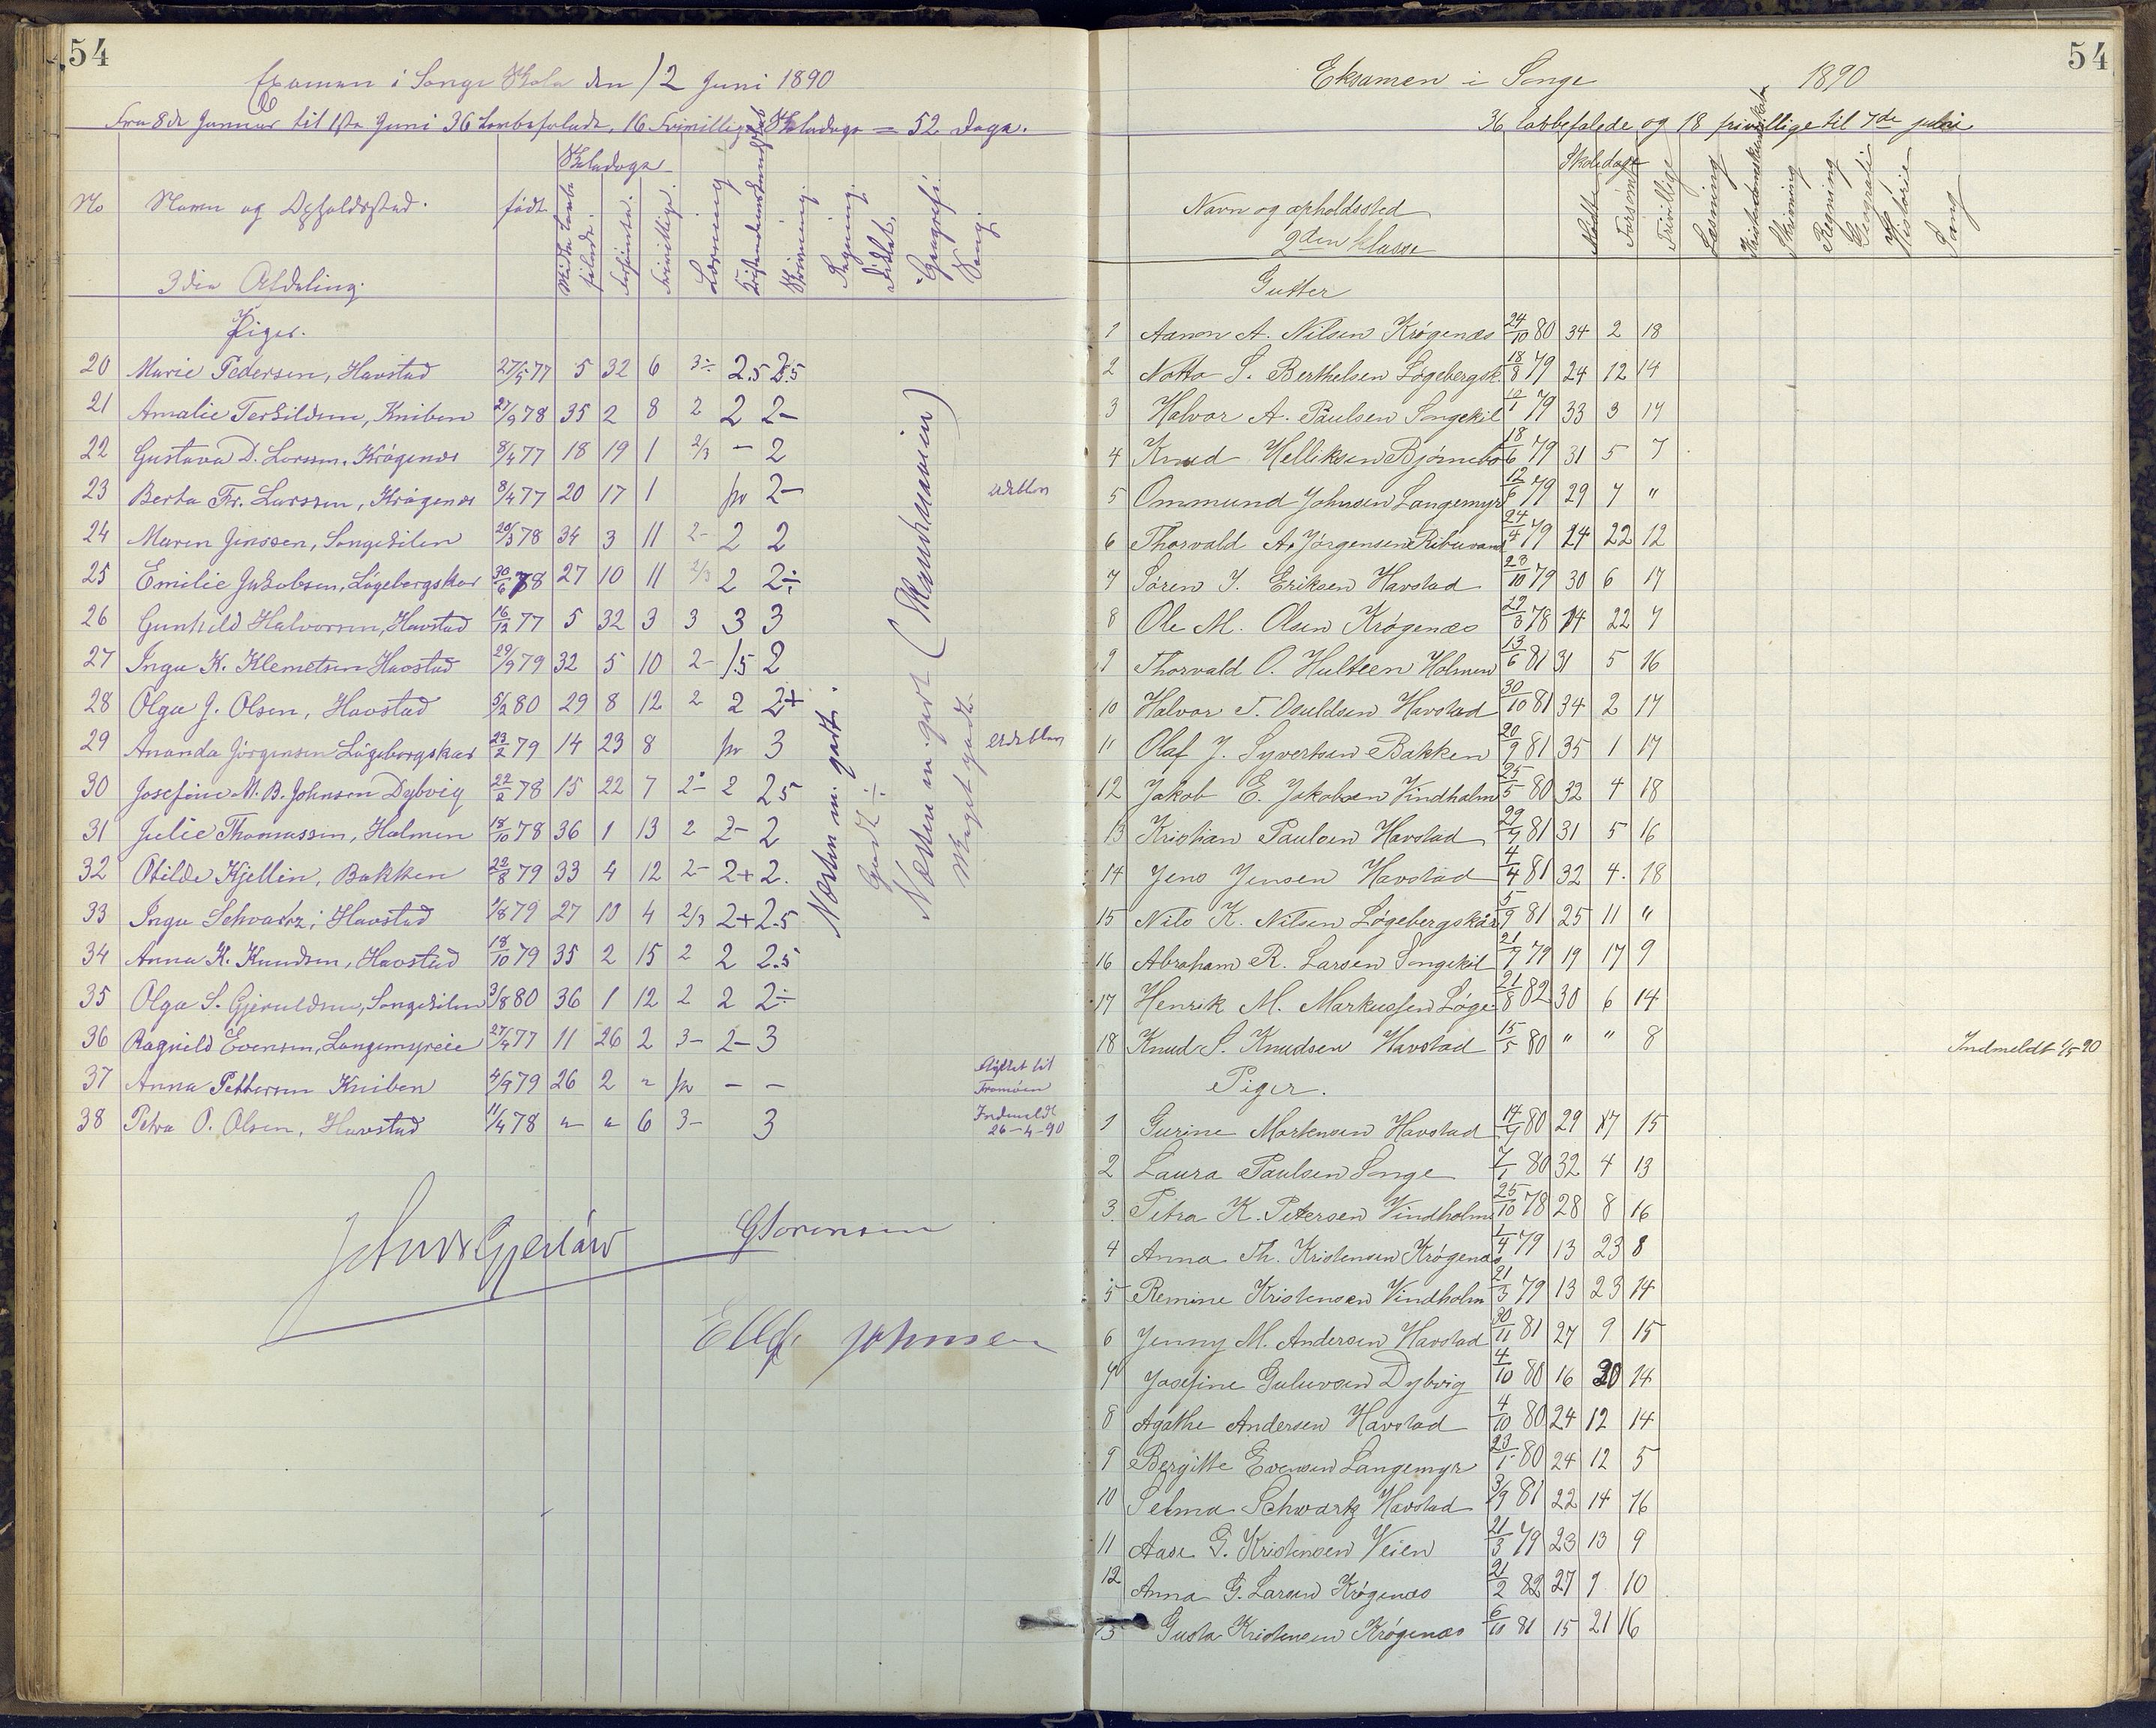 54
Examen i Songe Skole den 12 Juni 1890
Fra 8de Januar til 1ste Juni 36 Lovbefalede, 16 Frivillige Skoledage = 52 Dage.
No Navn og Opholdssted. født Skoledage
Mødte Lovbefalede. Forsømte. Frivillige. Læsning Kristendomskundskab Skrivning. Regning. Diktat. Geografi. Sang.
3die Afdeling.
Piger.
20 Marie Pedersen, Havstad 27/5 77 5 32 6 3÷ 2.5 2.5
21 Amalie Terkildsen, Kniben 27/9 78 35 2 8 2 2 2-
22 Gustava D. Larssen, Krøgenæs 8/4 77 18 19 1 2/3 - 2
23 Berta Fr. Larssen, Krøgenæs 8/4 77 20 17 1 fr 2- udebleven
24 Maren Jenssen, Songekilen 20/3 78 34 3 11 2- 2 2
25 Emilie Jakobsen, Løgebergskar 30/6 78 27 10 11 2/3 2 2÷
26 Gunhild Halvorsen, Havstad 16/12 77 5 32 3 3 3 3
27 Inga K. Klemetsen Havstad 29/9 79 32 5 10 2- 1.5 2
28 Olga J. Olsen, Havstad 5/2 80 29 8 12 2 2 2+
29 Ananda Jörgensen Lögebergskar 23/2 79 14 23 8 fr 3 udebleven
30 Josefine M. B. Johnsen Dybvig 22/2 78 15 22 7 2- 2 2.5
31 Julie Thomassen, Holmen 18/10 78 36 1 13 2 2- 2
32 Otilde Kjellin, Bakken 22/8 79 33 4 12 2- 2+ 2.
33 Inga Schvartz, Havstad 1/8 79 27 10 4 2/3 2+ 2.5
34 Anna K. Knudsen, Havstad 18/10 79 35 2 15 2 2 2.5
35 Olga S. Gjeruldsen, Songekilen 3/8 80 36 1 12 2 2 2÷
36 Ragnild Evensen, Langemyreie 27/4 77 11 26 2 3- 2- 3
37 Anna Pettersen Kniben 4/9 79 26 2 " fr - - flyttet til Tromöen
38 Petra O. Olsen, Havstad 11/4 78 " " 6 3- 3 Indmeldt 26-4-90
Næsten m. godt.
Godt ÷
Næsten m. godt (Skamhaarien)
Meget godt
GSorensen
Ellef Johnsen
54
Eksamen i Songe 1890
36 lovbefalede og 18 frivillige til 7de juni
Navn og opholdssted
2den klasse
Skoledage
Mødte Forsømte Frivillige Læsning Kristendomskundskab Skrivning Regning Geografi Historie Sang
Gutter
1 Aanon A. Nilsen Krøgenæs 24/10 80 34 2 18
2 Notto S. Berthelsen Løgebergsk. 18/8 79 24 12 14
3 Halvor A. Paulsen Songekil 10/1 79 33 3 17
4 Knud Helliksen Bjørnebo 18/6 79 31 5 7
5 Ommund Johnsen Langemyr 12/6 79 29 7 "
6 Thorvald A. Jørgensen Ribuvand 24/4 79 14 22 12
7 Søren J. Eriksen Havstad 28/10 79 30 6 17
8 Ole M. Olsen Krøgenæs 29/3 78 14 22 7
9 Thorvald O. Hulteen Holmen 13/6 81 31 5 16
10 Halvor T. Osuldsen Havstad 30/10 81 34 2 17
11 Olaf J. Syvertsen Bakken 20/9 81 35 1 17
12 Jakob E. Jakobsen Vindholm 25/5 80 32 4 18
13 Kristian Paulsen Havstad 29/7 81 31 5 16
14 Jens Jensen Havstad 4/4 81 32 4. 18
15 Nils K. Nilsen Løgebergskår 5/9 81 25 11 "
16 Abraham R. Larsen Songekil 21/7 79 19 17 9
17 Henrik M. Markussen Løge 21/8 82 30 6 14
18 Knud S. Knudsen Havstad 15/5 80 " " 8 Indmeldt 1/5 90
Piger.
1 Gurine Martensen Havstad 14/9 80 29 7 15
2 Laura Paulsen Songe 7/1 80 32 4 13
3. Petra K. Petersen Vindholm 25/10 78 28 8 16
4 Anna Th. Kristensen Krøgenæs 1/4 79 13 23 8
5 Remine Kristensen Vindholm 21/3 79 13 23 14
6 Jenny M. Andersen Havstad 30/11 81 27 9 15
7 Josefine Guluvsen Dybvig 4/10 80 16 20 14
8 Agathe Andersen Havstad 4/10 80 24 12 14
9 Bergitte Evensen Langemyr 23/1 80 24 12 5
10 Selma Schwartz Havstad 3/9 81 22 14 16
11 Aase G. Kristensen Veien 21/3 79 23 13 9
12 Anna G. Larsen Krøgenæs 21/2 82 27 9 10
13 Gusta Kristensen Krøgenæs 6/10 81 15 21 16